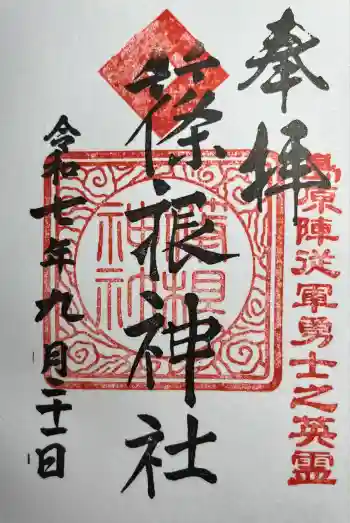 奉拝
島原陣従軍勇士之英霊
篠根神社
神社
令和七年九月二十一日